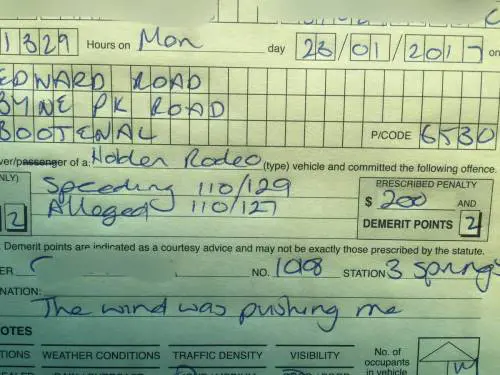 1329 Hours on Mon day 23/01/2017 on
EDWARD ROAD
BYNE PK ROAD
BOOTENAL P/CODE 6530
ver/passenger of a: Holden Rodeo (type) vehicle and committed the following offence.
NLY) Speeding 110/129 PRESCRIBED PENALTY
2 Alleged 110/127 $ 200 AND
DEMERIT POINTS 2
. Demerit points are indicated as a courtesy advice and may not be exactly those prescribed by the statute.
ER NO. 1098 STATION 3 springs
NATION:
The wind was pushing me
OTES
TIONS WEATHER CONDITIONS TRAFFIC DENSITY VISIBILITY No. of
occupants
in vehicle